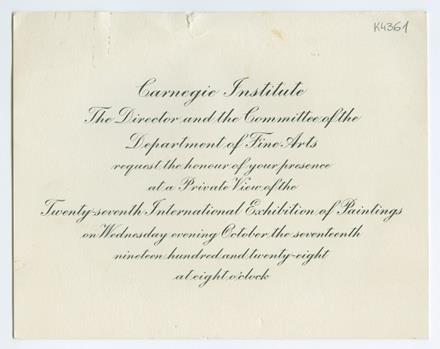 K4361
Carnegie Institute
The Director and the Committee of the
Department of Fine Arts
request the honour of your presence
at a Private View of the
Twenty-seventh International Exhibition of Paintings
on Wednesday evening October, the seventeenth
nineteen hundred and twenty-eight
at eight o'clock